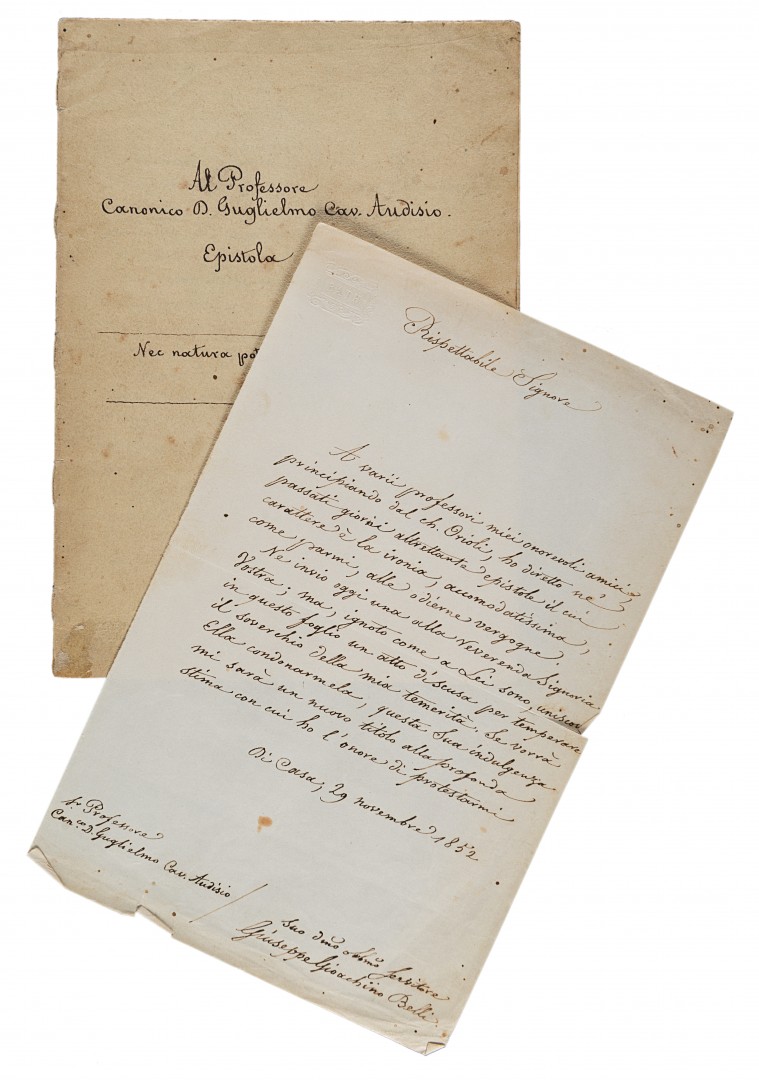 Al Professore
Canonico D. Guglielmo Cav. Audisio.
Epistola
Nec natura pot
Rispettabile Signore
A varii professori miei onorevoli amici,
principiando dal ch. Orioli, ho diretto ne'
passati giorni altrettante epistole il cui
carattere è la ironia, accomodatissima,
come parmi, alle odierne vergogne.
Ne invio oggi una alla Reverenda Signoria
Vostra; ma, ignoto come a Lei sono, unisco
in questo foglio un atto di scusa per temperare
il soverchio della mia temerità. Se vorrà
Ella condonarmela, questa Sua indulgenza
mi sarà un nuovo titolo alla profonda
stima con cui ho l'onore di protestarmi
Di Casa, 29 novembre 1852
Sr. Professore
Can.co D. Guglielmo Cav. Audisio
Suo dmo obbmo servitore
Giuseppe Gioachino Belli